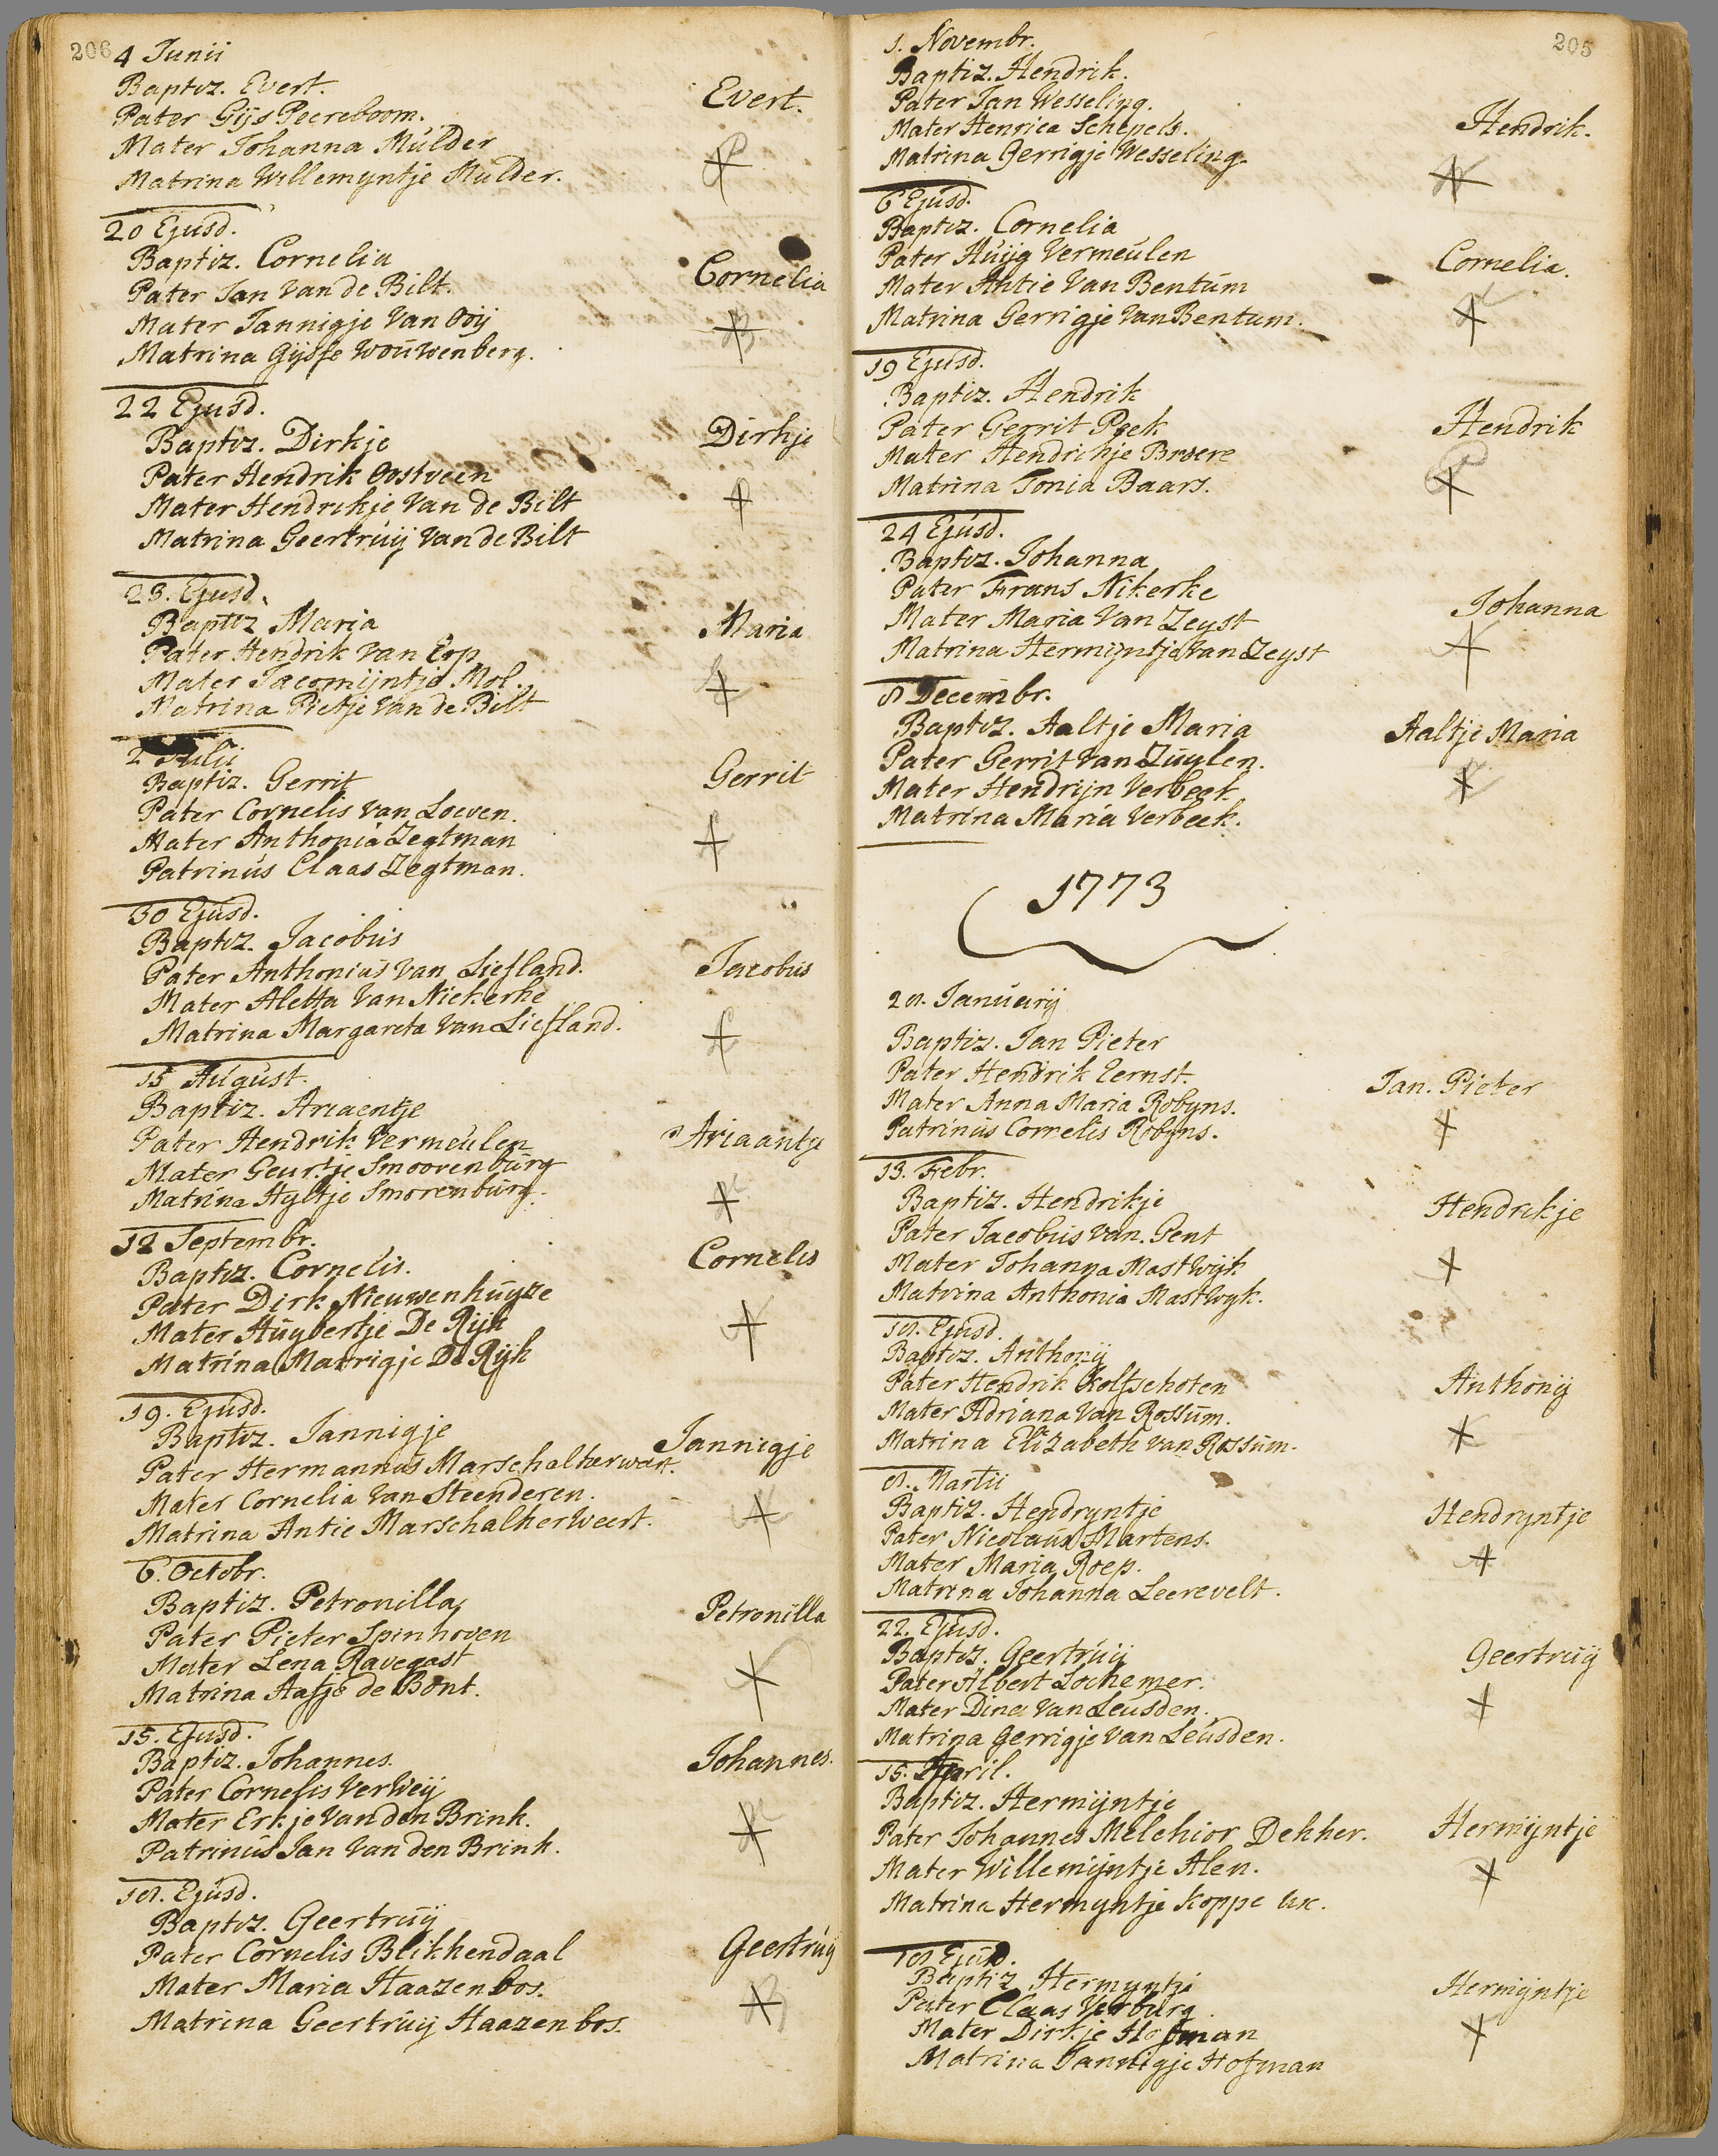 206
4 Junii
Baptiz. Evert.
Evert.
Pater Gijs Peereboom.
Mater Johanna Mulder
Matrina Willemyntje Mulder.
20 Ejusd.
Baptiz. Cornelia
Cornelia
Pater Jan van de Bilt.
Mater Jannigje Van Ooij
Matrina Gijsje Wouwenberg.
22 Ejusd.
Baptiz. Dirkje
Dirkje
Pater Hendrik Oostveen
Mater Hendrikje Van de Bilt
Matrina Geertruij Van de Bilt
23. Ejusd.
Baptiz Maria
Maria
Pater Hendrik Van Erp
Mater Jacomijntje Mol.
Matrina Pietje Van de Bilt
2 Julii
Baptiz. Gerrit
Gerrit
Pater Cornelis van Loeven.
Mater Anthonia Zegtman
Patrinus Claas Zegtman.
30 Ejusd.
Baptiz. Jacobus
Jacobus
Pater Anthonius Van Liefland.
Mater Aletta Van Niekerke
Matrina Margareta Van Liefland.
15 August.
Baptiz. Ariaentje
Ariaantje
Pater Hendrik Vermeulen
Mater Geurtje Smoorenburg
Matrina Hyltje Smorenburg.
12 Septembr.
Baptiz. Cornelis.
Cornelis
Pater Dirk Nieuwenhuyze
Mater Huybertje De Rijk
Matrina Marrigje De Rijk
19. Ejusd.
Baptiz. Jannigje
Jannigje
Pater Hermannus Marschalkerwert.
Mater Cornelia Van Steenderen.
Matrina Antie Marschalkerweert.
6. Octobr.
Baptiz. Petronilla
Petronilla
Pater Pieter Spinhoven
Mater Lena Ravegast
Matrina Aafje de Bont.
15. Ejusd.
Baptiz. Johannes.
Johannes.
Pater Cornelis VerWeij
Mater Erkje Van den Brink.
Patrinus Jan Van den Brink.
18. Ejusd.
Baptiz. Geertruij
Geertruij
Pater Cornelis Blikkendaal
Mater Maria Haazenbos.
Matrina Geertruij Haazenbos.
205
1. Novembr.
Baptiz. Hendrik.
Hendrik.
Pater Jan Wesseling.
Mater Henrica Schepels.
Matrina Gerrigje Wesseling.
6 Ejusd.
Baptiz. Cornelia
Cornelia.
Pater Huijg Vermeulen
Mater Antie Van Bentum
Matrina Gerrigje Van Bentum.
19 Ejusd.
Baptiz. Hendrik
Hendrik
Pater Gerrit Peek
Mater Hendrikje Broere
Matrina Tonia Baars.
24 Ejusd.
Baptiz. Johanna
Johanna
Pater Frans Nikerke
Mater Maria Van Zeyst
Matrina Hermijntje Van Zeyst
8 Decembr.
Baptiz. Aaltje Maria
Aaltje Maria
Pater Gerrit Van Zuylen.
Mater Hendrijn Verbeek
Matrina Maria Verbeek.
1773
28. Januarij
Baptiz. Jan Pieter
Jan. Pieter
Pater Hendrik Eernst.
Mater Anna Maria Robyns.
Patrinus Cornelis Robyns.
13. Febr.
Baptiz. Hendrikje
Hendrikje
Pater Jacobus van. Gent
Mater Johanna Mastwijk
Matrina Anthonia Mastwyk.
18. Ejusd.
Baptiz. Anthonij
Anthonij
Pater Hendrik Kolfschoten
Mater Adriana Van Rossum.
Matrina Elizabeth van Rossum.
8. Martii
Baptiz. Hendryntje
Hendryntje
Pater Nicolaus Martens.
Mater Maria Roep.
Matrina Johanna Leerevelt.
22. Ejusd.
Baptiz. Geertruij
Geertruij
Pater Albert Lochemer.
Mater Dina Van Leusden.
Matrina Gerrigje Van Leusden.
15. April.
Baptiz. Hermijntje
Hermijntje
Pater Johannes Melchior Dekker.
Mater Willemijntje Alen.
Matrina Hermyntje Koppe ux.
18 Ejusd.
Baptiz Hermyntje
Hermijntje
Pater Claas Verburg.
Mater Dirkje Hofman
Matrina Jannigje Hofman